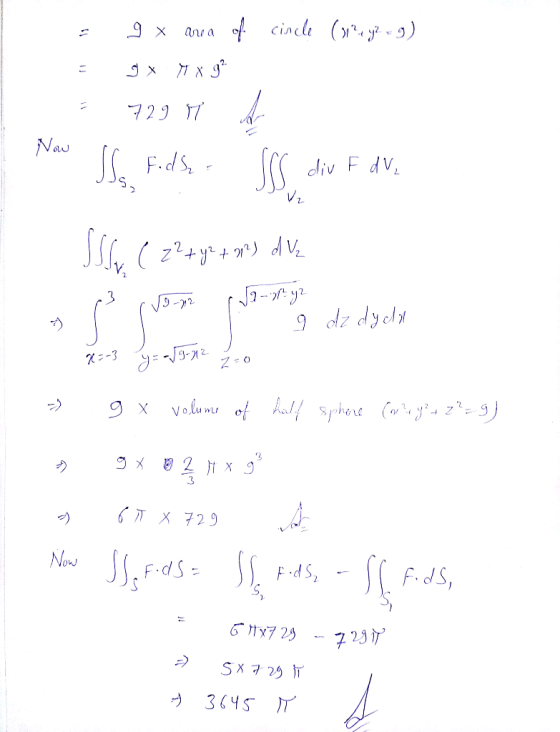 = 9 × area of circle (x²+y²=9)
= 9 × π × 9²
= 729 π
Now ∬_{S₂} F.dS₂ - ∭_{V₂} div F dV₂
∭_{V₂} (z²+y²+x²) dV₂
⇒ ∫_{x=-3}^{3} ∫_{y=-√(9-x²)}^{√(9-x²)} ∫_{z=0}^{√(9-x²-y²)} 9 dz dy dx
⇒ 9 × volume of half sphere (x²+y²+z²=9)
⇒ 9 × 2/3 π × 9³
⇒ 6π × 729
Now ∬_S F.dS = ∬_{S₂} F.dS₂ - ∬_{S₁} F.dS₁
= 6π×729 - 729π
⇒ 5×729 π
⇒ 3645 π